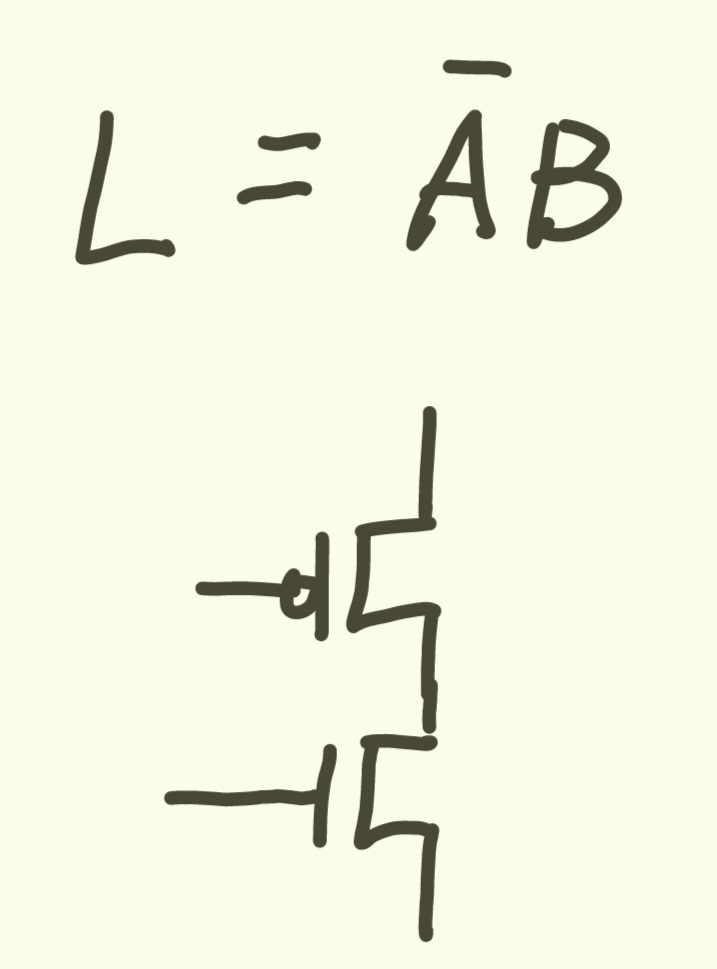 L = A̅B